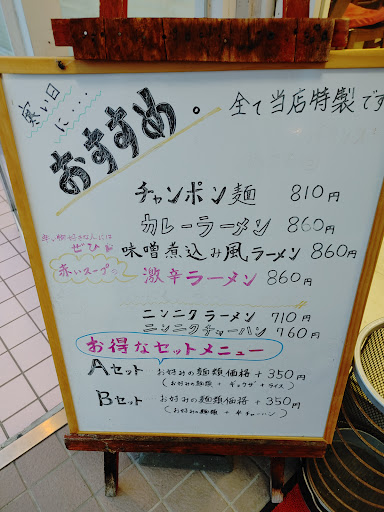 寒い日
に...
おすすめ。
全て当店特製です
チャンポン麺 810円
カレーラーメン 860円
味噌煮込み風ラーメン 860円
辛い物好きな人には
ぜひ
赤いスープの
激辛ラーメン 860円
ニンニクラーメン 710円
ニンニクチャーハン 760円
お得なセットメニュー
Aセット お好みの麺類価格 + 350円
(お好みの麺類 + ギョウザ + ライス)
Bセット お好みの麺類価格 + 350円
(お好みの麺類 + 半チャーハン)